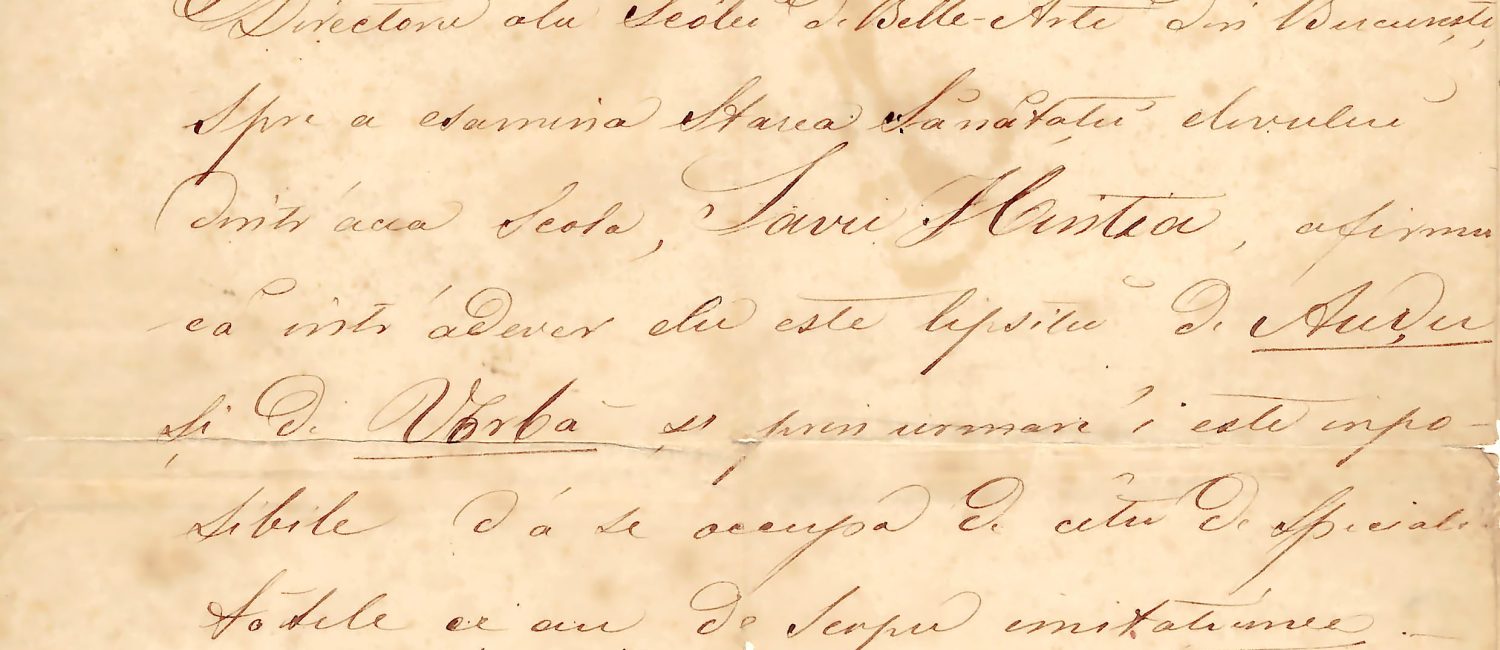 Directoru alu Scólei de Belle-Arte din Bucuresti,
spre a esamina Starea Sănătatii elevului
dintr'acea Scola, Savu Hentia, afirmu
că intr'adever elu este lipsitu de Auḑu
și de Vorbă și prin urmare 'i este inpo-
sibile d'a se occupa de cătu de speciali
tătile ce au de scopu imitatiunea.-